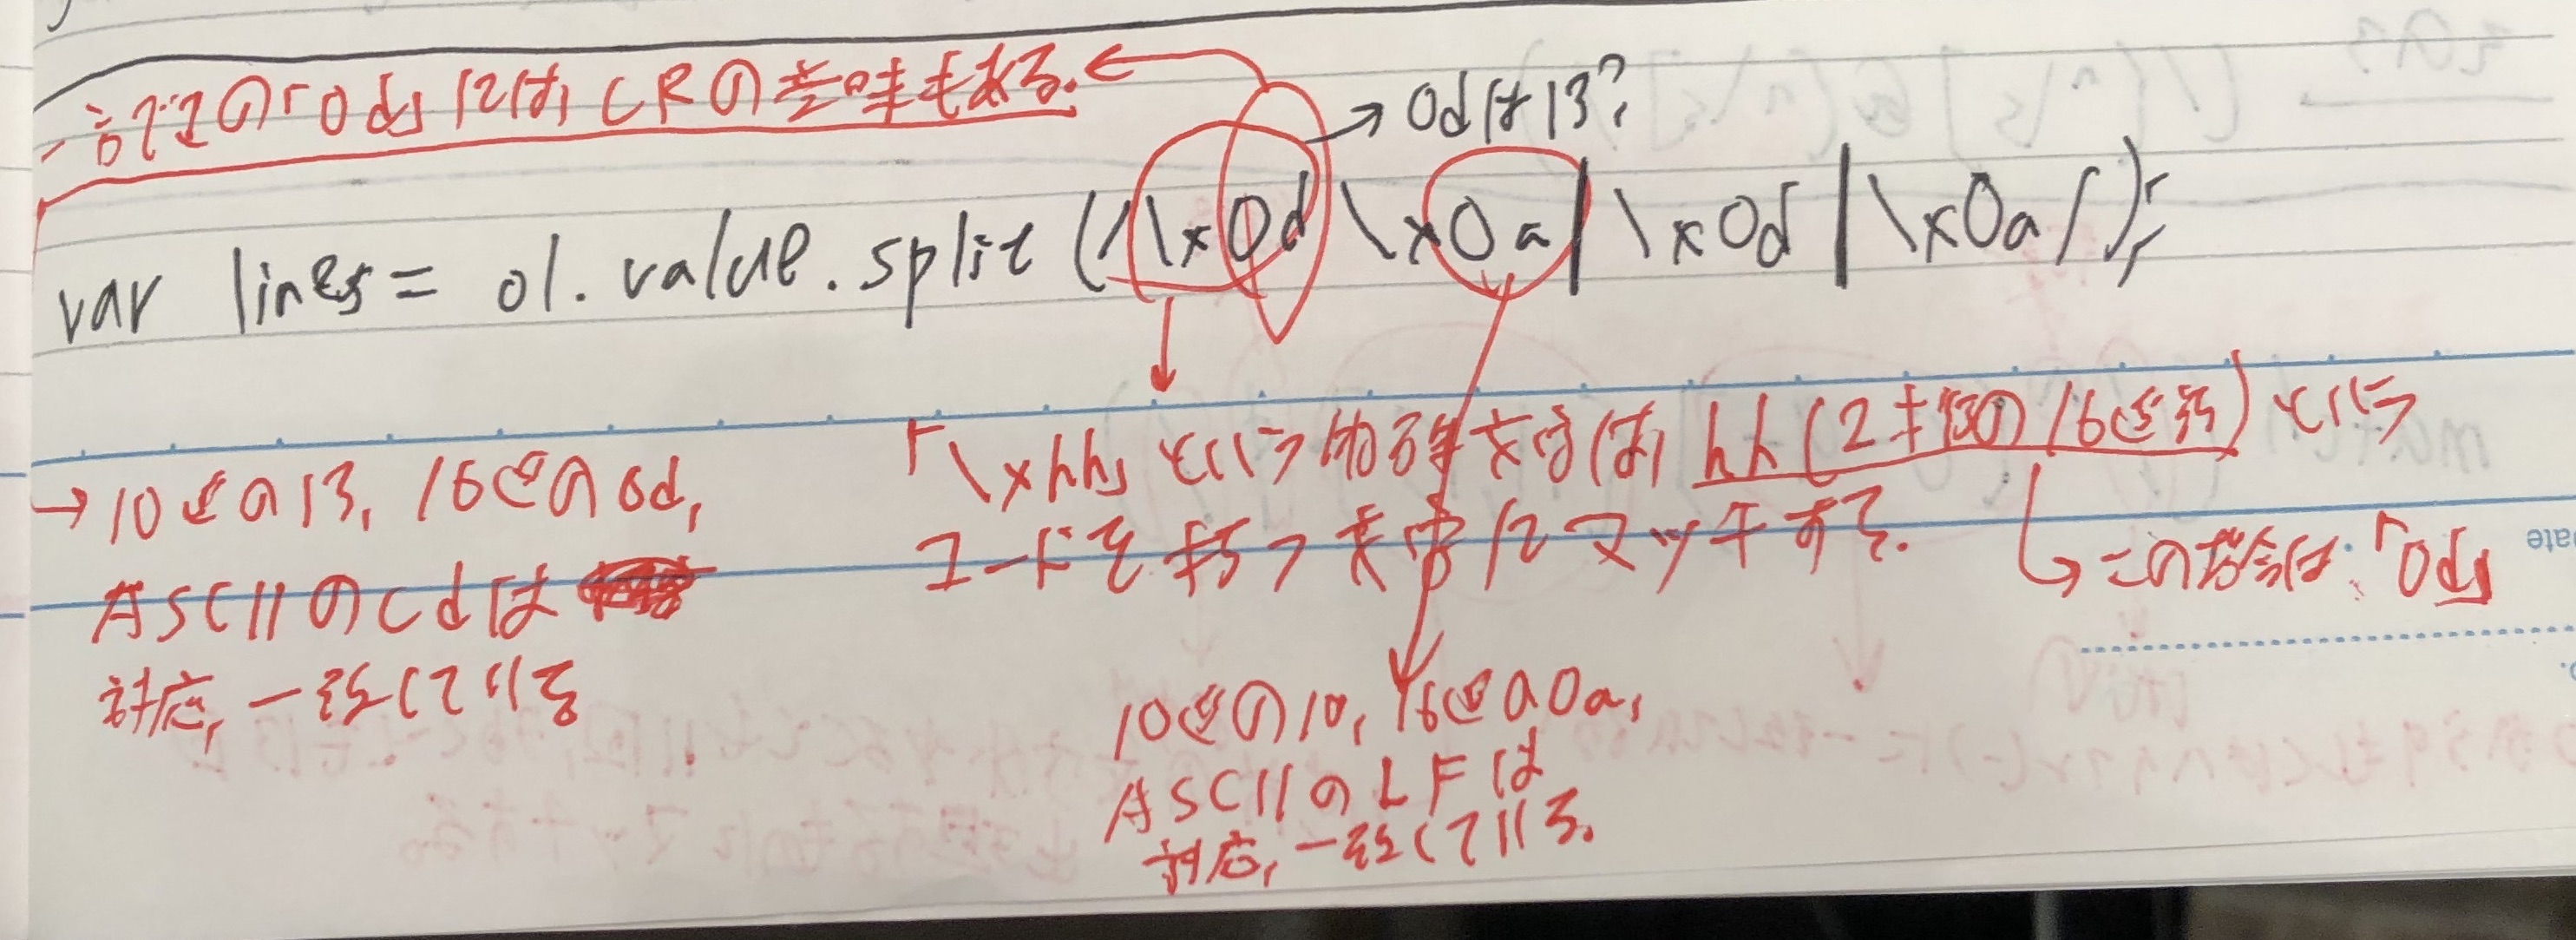 記述の「0d」にはCRの意味もある。
→0dは13?
var lines = ol.value.split(/\x0d\x0a|\x0d|\x0a/);
「\xhh」という特殊文字は hh(2キ扱の16進数)という
コードを持つ文字にマッチする。
→この場合は「0d」
→10進の13, 16進の0d,
ASCIIのCdは
対応,一致している
10進の10, 16進の0a,
ASCIIのLFは
対応,一致している。
ate